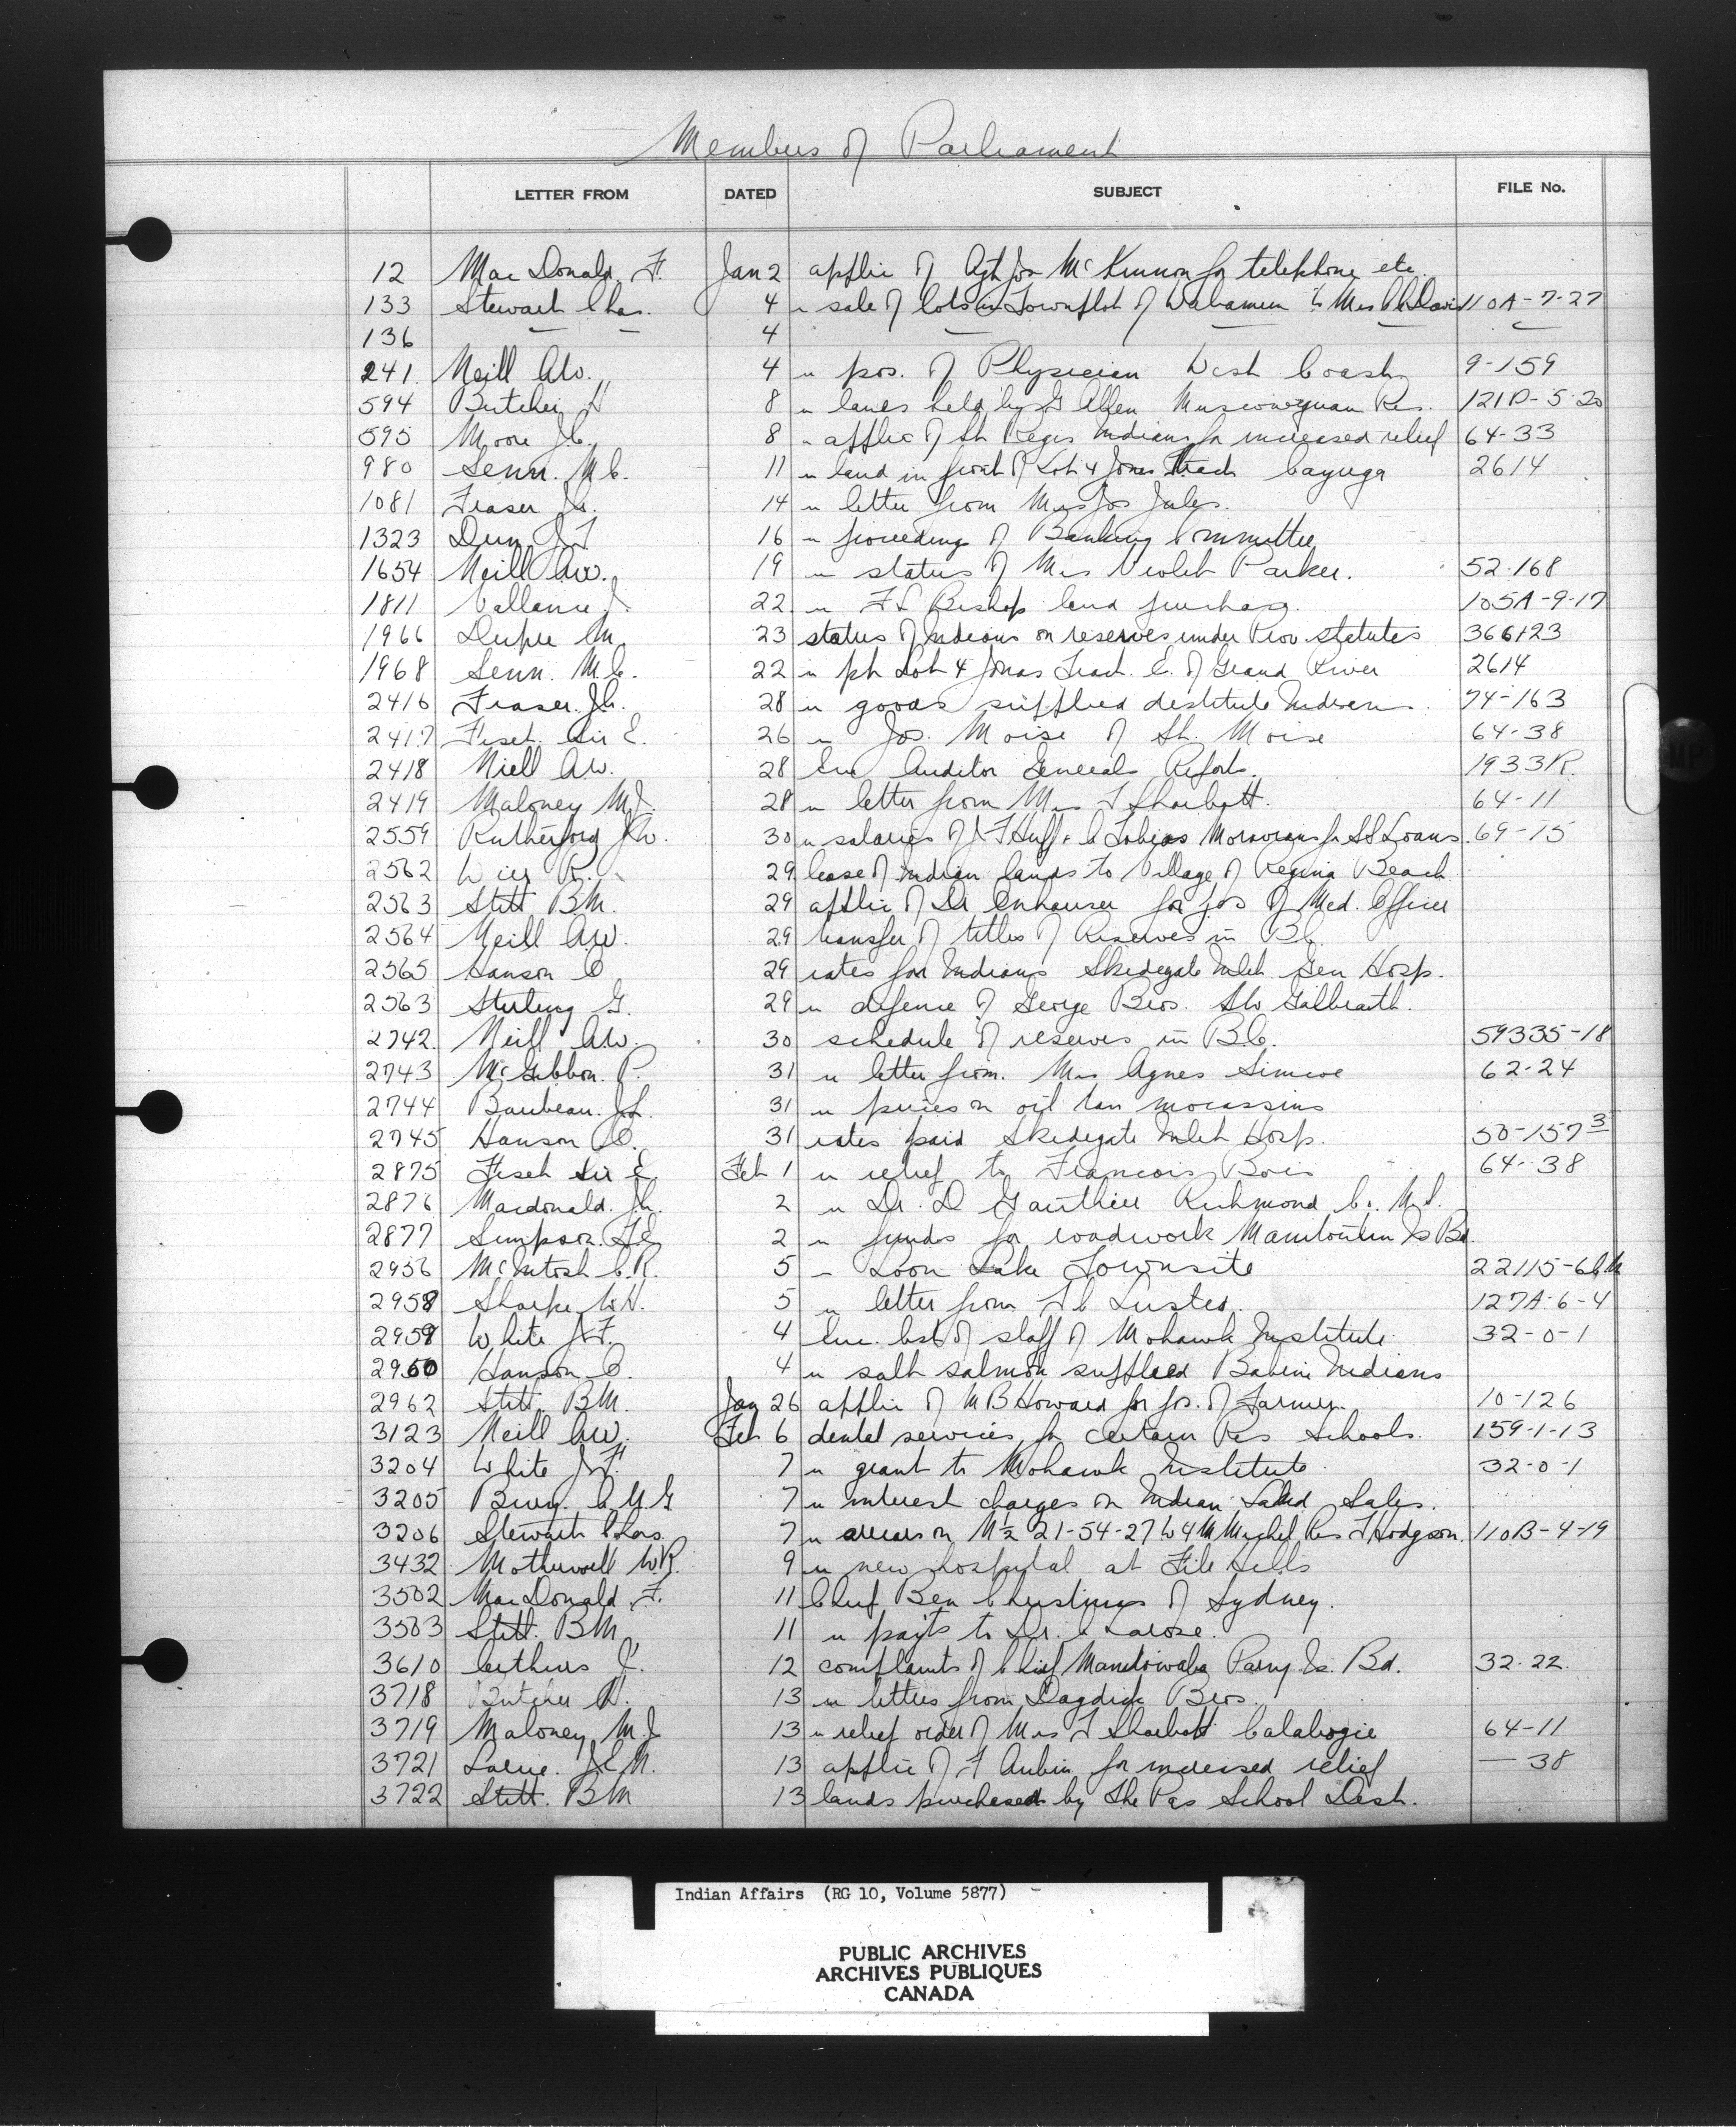 Members of Parliament
LETTER FROM DATED SUBJECT FILE No.
12 MacDonald F. Jan 2 applic of Agt Jos McKinnon for telephone etc.
133 Stewart Chas. 4 " sale of lots in Townplot of Wabamun to Mrs Davis 110A-7-27
136 — — 4 — — — —
241 Neill A.W. 4 " pos. of Physician West Coast 9-159
594 Butcher H 8 " lands held by G Allen Muscowequan Res. 121D-5-20
595 Moore J.C. 8 " applic of St Regis Indians for increased relief 64-33
980 Senn. M.C. 11 " land in front of Lot 4 Jones Track Cayuga 2614
1081 Fraser J.A. 14 " letter from Mrs Jos Jules.
1323 16 " proceedings of Banking Committee
1654 Neill A.W. 19 " status of Mrs Violet Parker. 52-168
1811 Vallance J. 22 " F L Bishop land purchase. 105A-9-17
1966 Dupre M. 23 status of Indians on reserves under Prov statutes 366123
1968 Senn. M.C. 22 " pt Lot 4 Jonas Tract. E. of Grand River 2614
2416 Fraser. J.A. 28 " goods supplied destitute Indians. 74-163
2417 Fiset. Sir E. 26 " Jos. Moise of St. Moise 64-38
2418 Niell A.W. 28 Enc Auditor Generals Reports. 1933R.
2419 Maloney M.J. 28 " letter from Mrs F Sharbott. 64-11
2559 Rutherford J.W. 30 " salaries of J F Huff & C Tobias Moravians 69-15
2562 Weir R. 29 lease of Indian lands to Village of Regina Beach
2563 Stitt B.M. 29 applic of Dr for pos of Med. Officer
2564 Neill A.W. 29 transfer of titles of Reserves in B.C.
2565 Hanson O 29 rates for Indians Skidegate Inlet Gen Hosp.
2563 Stirling G. 29 " defense of George Bros. Galbraith.
2742. Neill A.W. 30 schedule of reserves in B.C. 59335-18
2743 McGibbon. P. 31 " letter from. Mrs Agnes Simcoe 62-24
2744 Baribeau. J.L. 31 " prices on oil tan mocassins
2745 Hanson O. 31 rates paid Skidegate Inlet Hosp. 50-157 3
2875 Fiset Sir E Feb 1 " relief to Francois Bois 64-38
2876 Macdonald. J.A. 2 " Dr. D Gauthier Richmond Co. N.S.
2877 Simpson. T.E. 2 " funds for roadwork Manitoulin Is Bd.
2956 McIntosh C.R. 5 " Loon Lake Townsite 22115-6
2958 Sharpe W.H. 5 " letter from 127A-6-4
2959 White J.F. 4 Enc. list of staff of Mohawk Institute 32-0-1
2960 Hanson O. 4 " salt salmon supplied Babine Indians
2962 Stitt. B.M. Jan 26 applic of M B Howard for pos. of Farmer. 10-126
3123 Neill A.W. Feb 6 dental services for certain Res Schools. 159-1-13
3204 White J.F. 7 " grant to Mohawk Institute. 32-0-1
3205 Bury. A.U.G 7 " interest charges on Indian Land Sales.
3206 Stewart Chas. 7 " arrears on N½ 21-54-27 W4M Michel Res F Hodgson. 110B-4-19
3432 Motherwell W.R. 9 " new hospital at File Hills
3502 MacDonald F. 11 Chief Ben Christmas of Sydney.
3503 Stitt. B.M. 11 " payts to Dr. C Larose.
3610 Arthurs J. 12 complaints of Chief Parry Is. Bd. 32-22.
3718 Butcher H. 13 " letters from Bros.
3719 Maloney M.J 13 " relief order of Mrs F Sharbott Calabogie 64-11
3721 13 applic of F Aubin for increased relief — 38
3722 Stitt. B.M 13 lands purchased by The Pas School Dist.
Indian Affairs (RG 10, Volume 5877)
PUBLIC ARCHIVES
ARCHIVES PUBLIQUES
CANADA